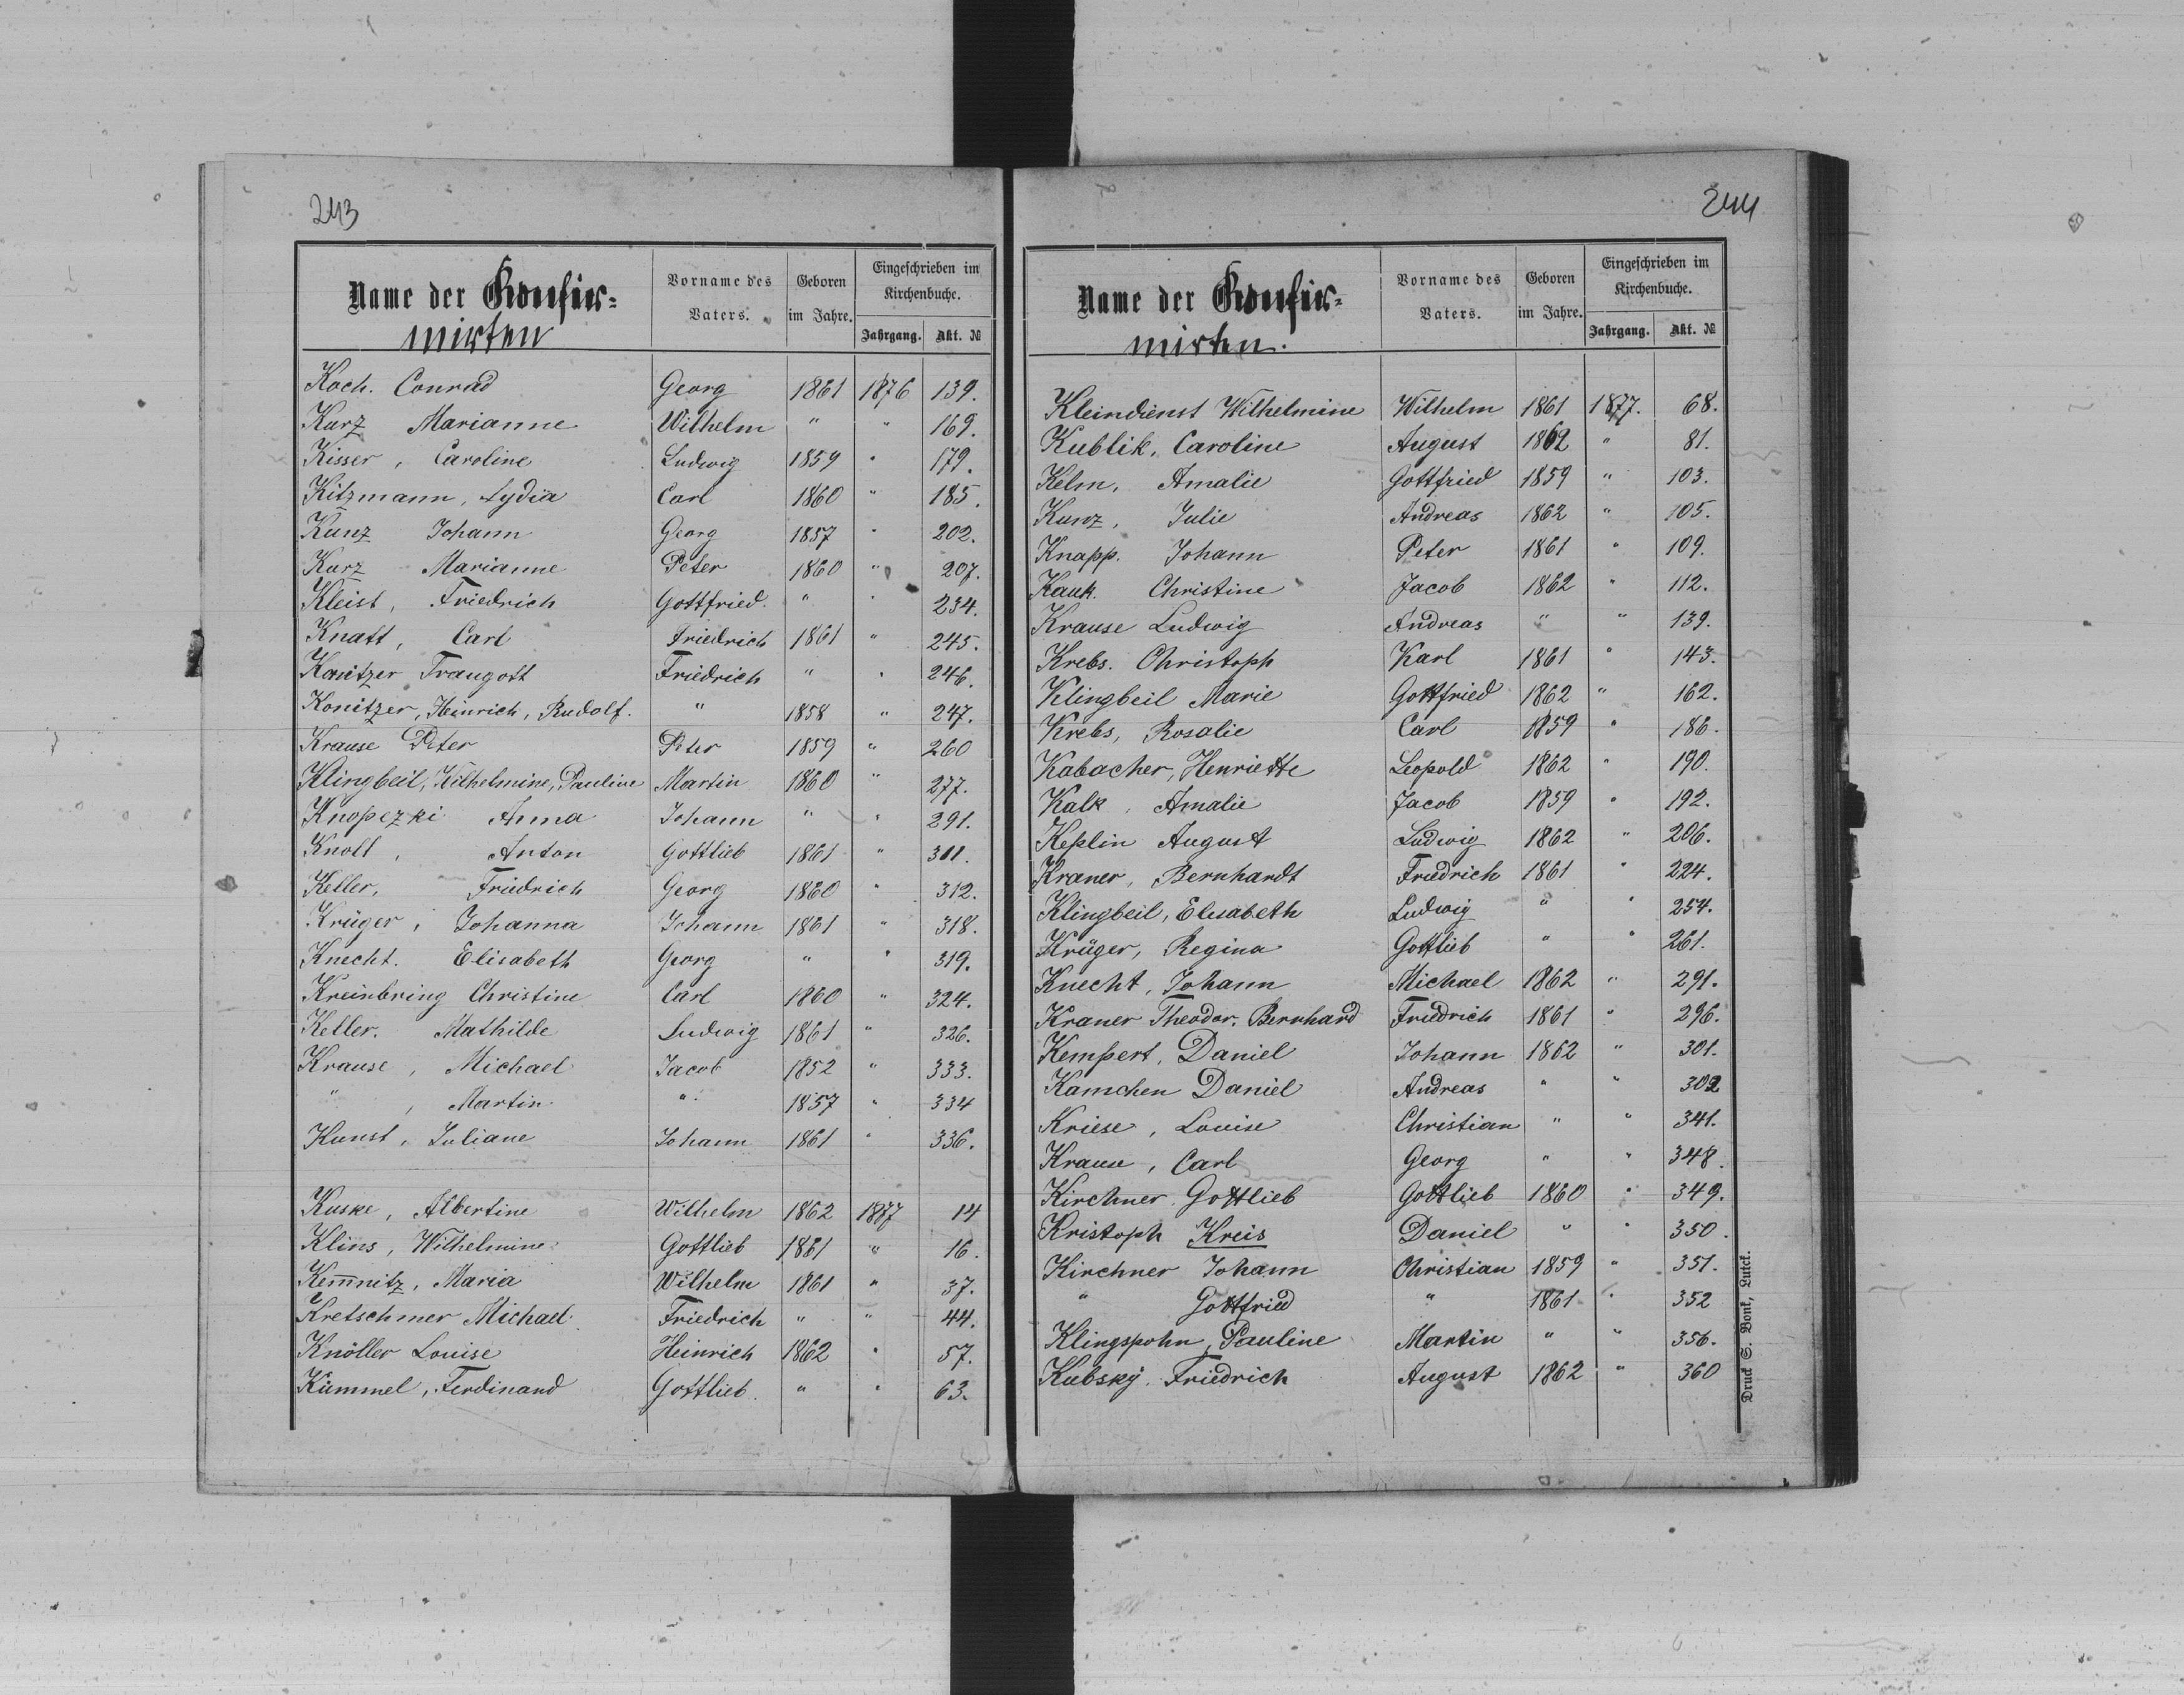 243
Name der Konfir=
mirten
Vorname des Vaters.
Geboren im Jahre.
Eingeschrieben im Kirchenbuche.
Jahrgang. Akt. №
Koch. Conrad Georg 1861 1876 139.
Kurz Marianne Wilhelm " " 169.
Kisser, Caroline Ludwig 1859 " 179.
Kitzmann, Lydia Carl 1860 " 185.
Kunz Johann Georg 1857 " 202.
Kurz Marianne Peter 1860 " 207.
Kleist, Friedrich Gottfried. " " 234.
Knatt, Carl Friedrich 1861 " 245.
Konitzer Traugott Friedrich " " 246.
Konitzer, Heinrich, Rudolf. " 1858 " 247.
Krause Peter Peter 1859 " 260
Klingbeil, Wilhelmine, Pauline Martin 1860 " 277.
Knopezki Anna Johann " " 291.
Knoll, Anton Gottlieb 1861 " 311.
Keller, Friedrich Georg 1860 " 312.
Krüger, Johanna Johann 1861 " 318.
Knecht. Elisabeth Georg " " 319.
Kreinbring Christine Carl 1860 " 324.
Keller. Mathilde Ludwig 1861 " 326.
Krause, Michael Jacob 1852 " 333.
" , Martin " 1857 " 334
Kunst, Juliane Johann 1861 " 336.
Kuske, Albertine Wilhelm 1862 1877 14
Klins, Wilhelmine Gottlieb 1861 " 16.
Kem̅nitz, Maria Wilhelm 1861 " 37.
Kretschmer Michael Friedrich " " 44.
Knöller Louise Heinrich 1862 " 57.
Kümmel, Ferdinand Gottlieb. " " 63.
244
Name der Konfir=
mirten.
Vorname des Vaters.
Geboren im Jahre.
Eingeschrieben im Kirchenbuche.
Jahrgang. Akt. №
Kleindienst Wilhelmine Wilhelm 1861 1877. 68.
Kublik, Caroline August 1862 " 81.
Kelm, Amalie Gottfried 1859 " 103.
Kunz, Julie Andreas 1862 " 105.
Knapp. Johann Peter 1861 " 109.
Kauk. Christine Jacob 1862 " 112.
Krause Ludwig Andreas " " 139.
Krebs. Christoph Karl 1861 " 143.
Klingbeil Marie Gottfried 1862 " 162.
Krebs, Rosalie Carl 1859 " 186.
Kabacher, Henriette Leopold 1862 " 190.
Kalk, Amalie Jacob 1859 " 192.
Keplin August Ludwig 1862 " 206.
Kraner, Bernhardt Friedrich 1861 " 224.
Klingbeil, Elisabeth Ludwig " " 254.
Krüger, Regina Gottlieb " " 261.
Knecht, Johann Michael 1862 " 291.
Kraner Theodor. Bernhard Friedrich 1861 " 296.
Kempert, Daniel Johann 1862 " 301.
Kamchen Daniel Andreas " " 302
Kriese, Louise Christian " " 341.
Krause, Carl Georg " " 348.
Kirchner Gottlieb Gottlieb 1860 " 349.
Kristoph Kreis Daniel " " 350.
Kirchner Johann Christian 1859 " 351.
" Gottfried " 1861 " 352
Klingspohn, Pauline Martin " " 356.
Kubsky. Friedrich August 1862 " 360
Druck S. Bonk, Lutck.